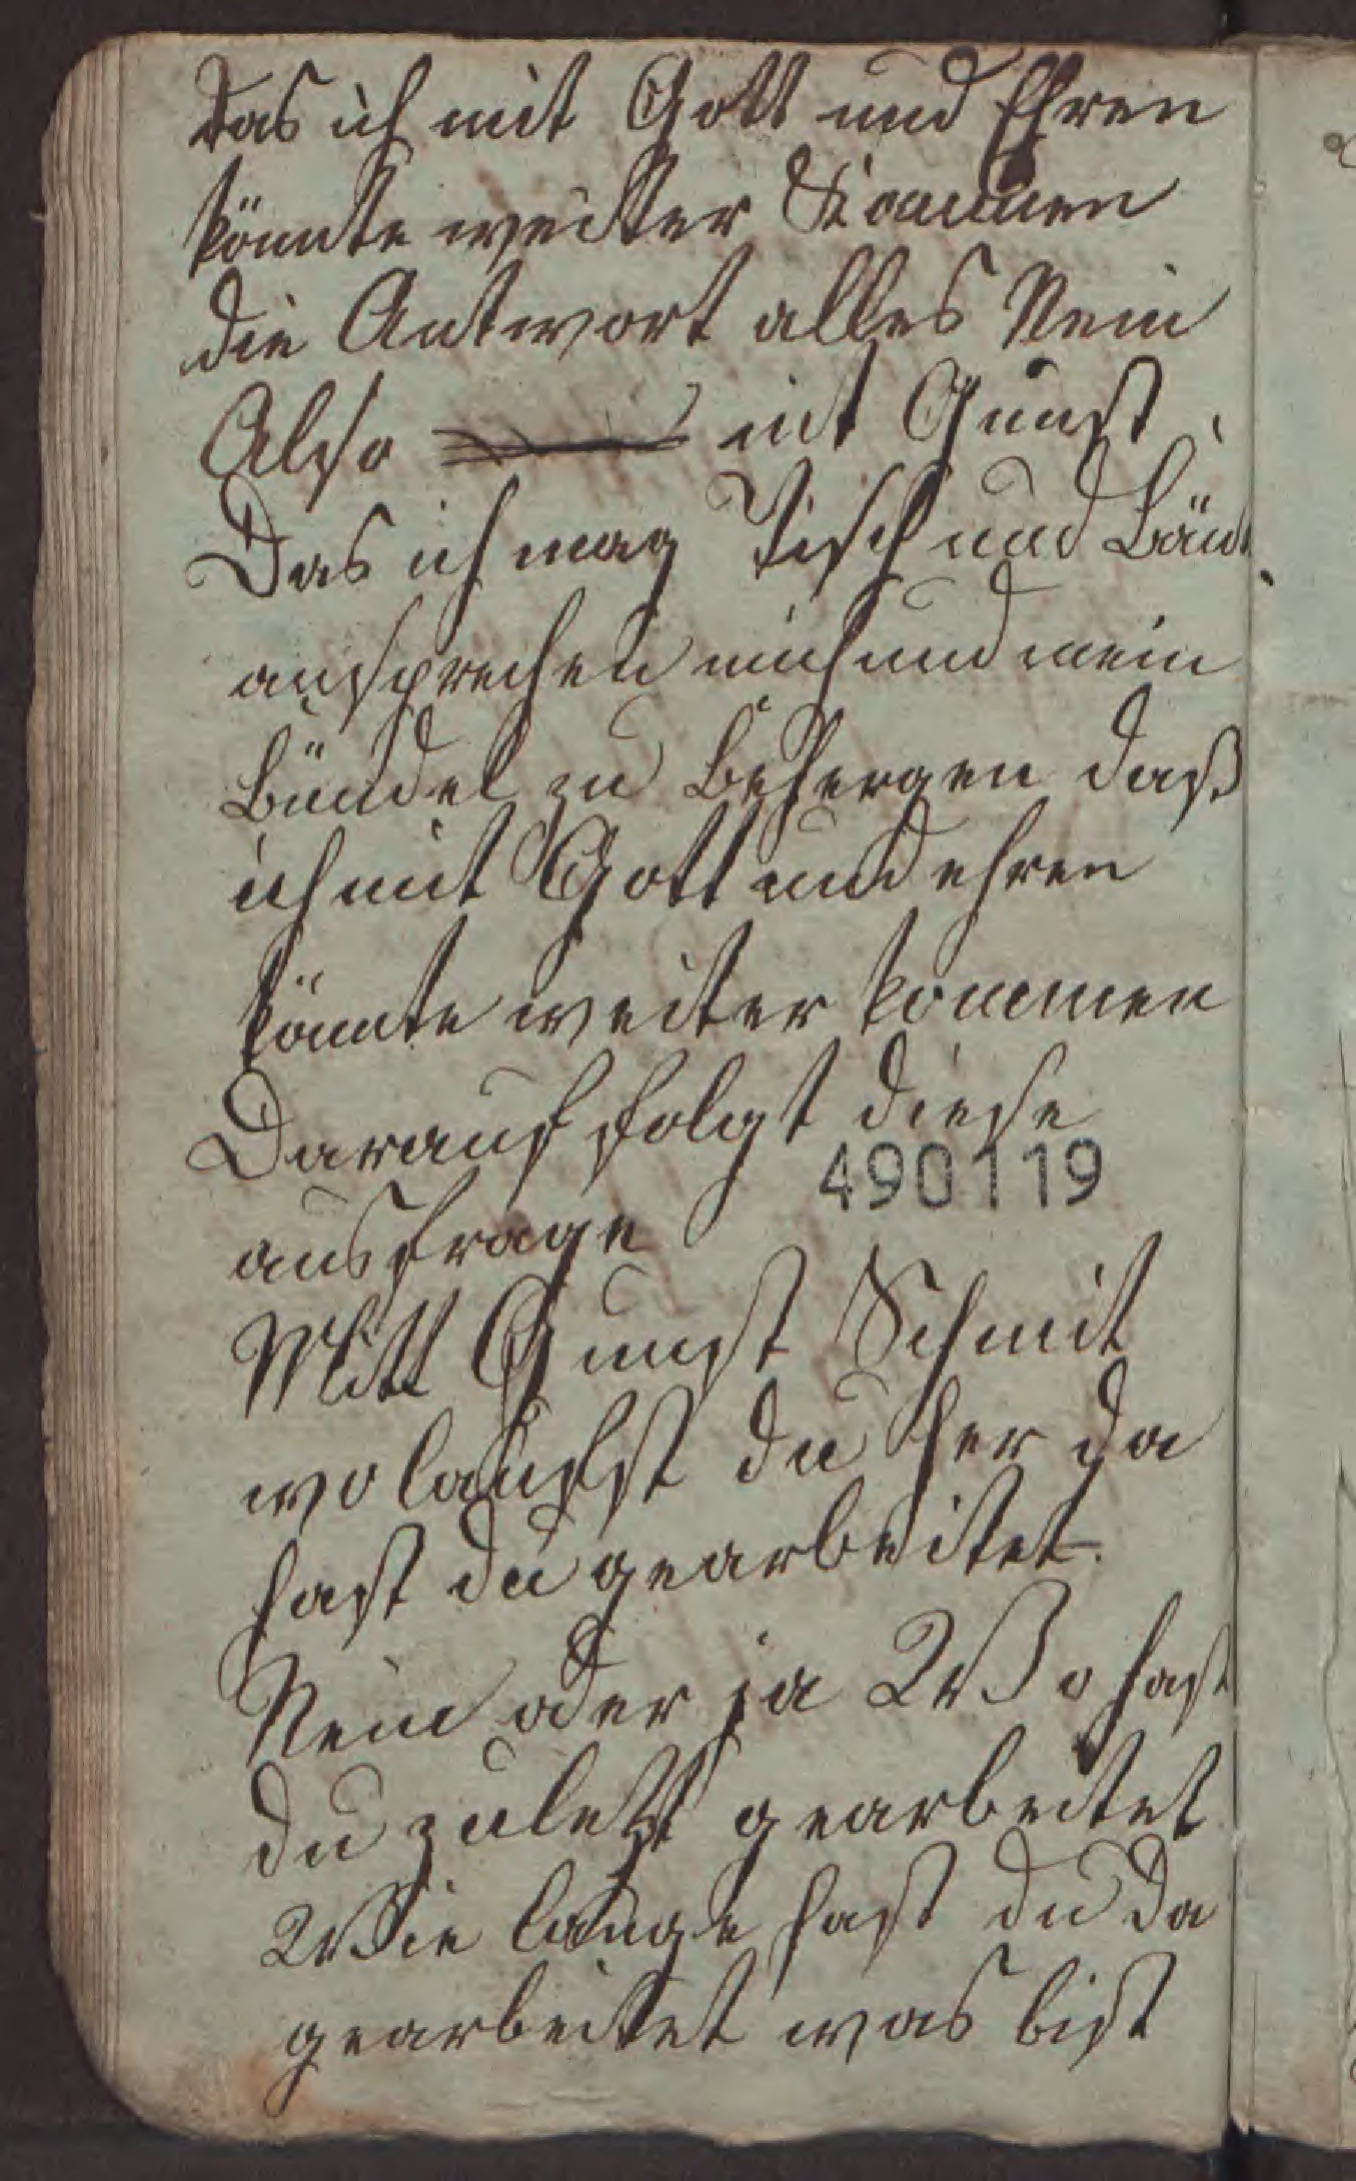 Das ich mit Gott und Ehren
könnte weitter Kommen
die Antwort alles Nein
Also mit Gunst
Das ich mag Tisch und Bänk
ansprechen mich und mein
Bündel zu Behergen daß
ich mit Gott und ehren
könnte weiter kommen
Darauf folgt diese
490119
ausfrage
Mitt Gunst Schmit
wo laufst du her da
hast du gearbeitet
Nein oder ja Wo hast
du zuletzt gearbeitet
Wie lange hast du da
gearbeitet was bist